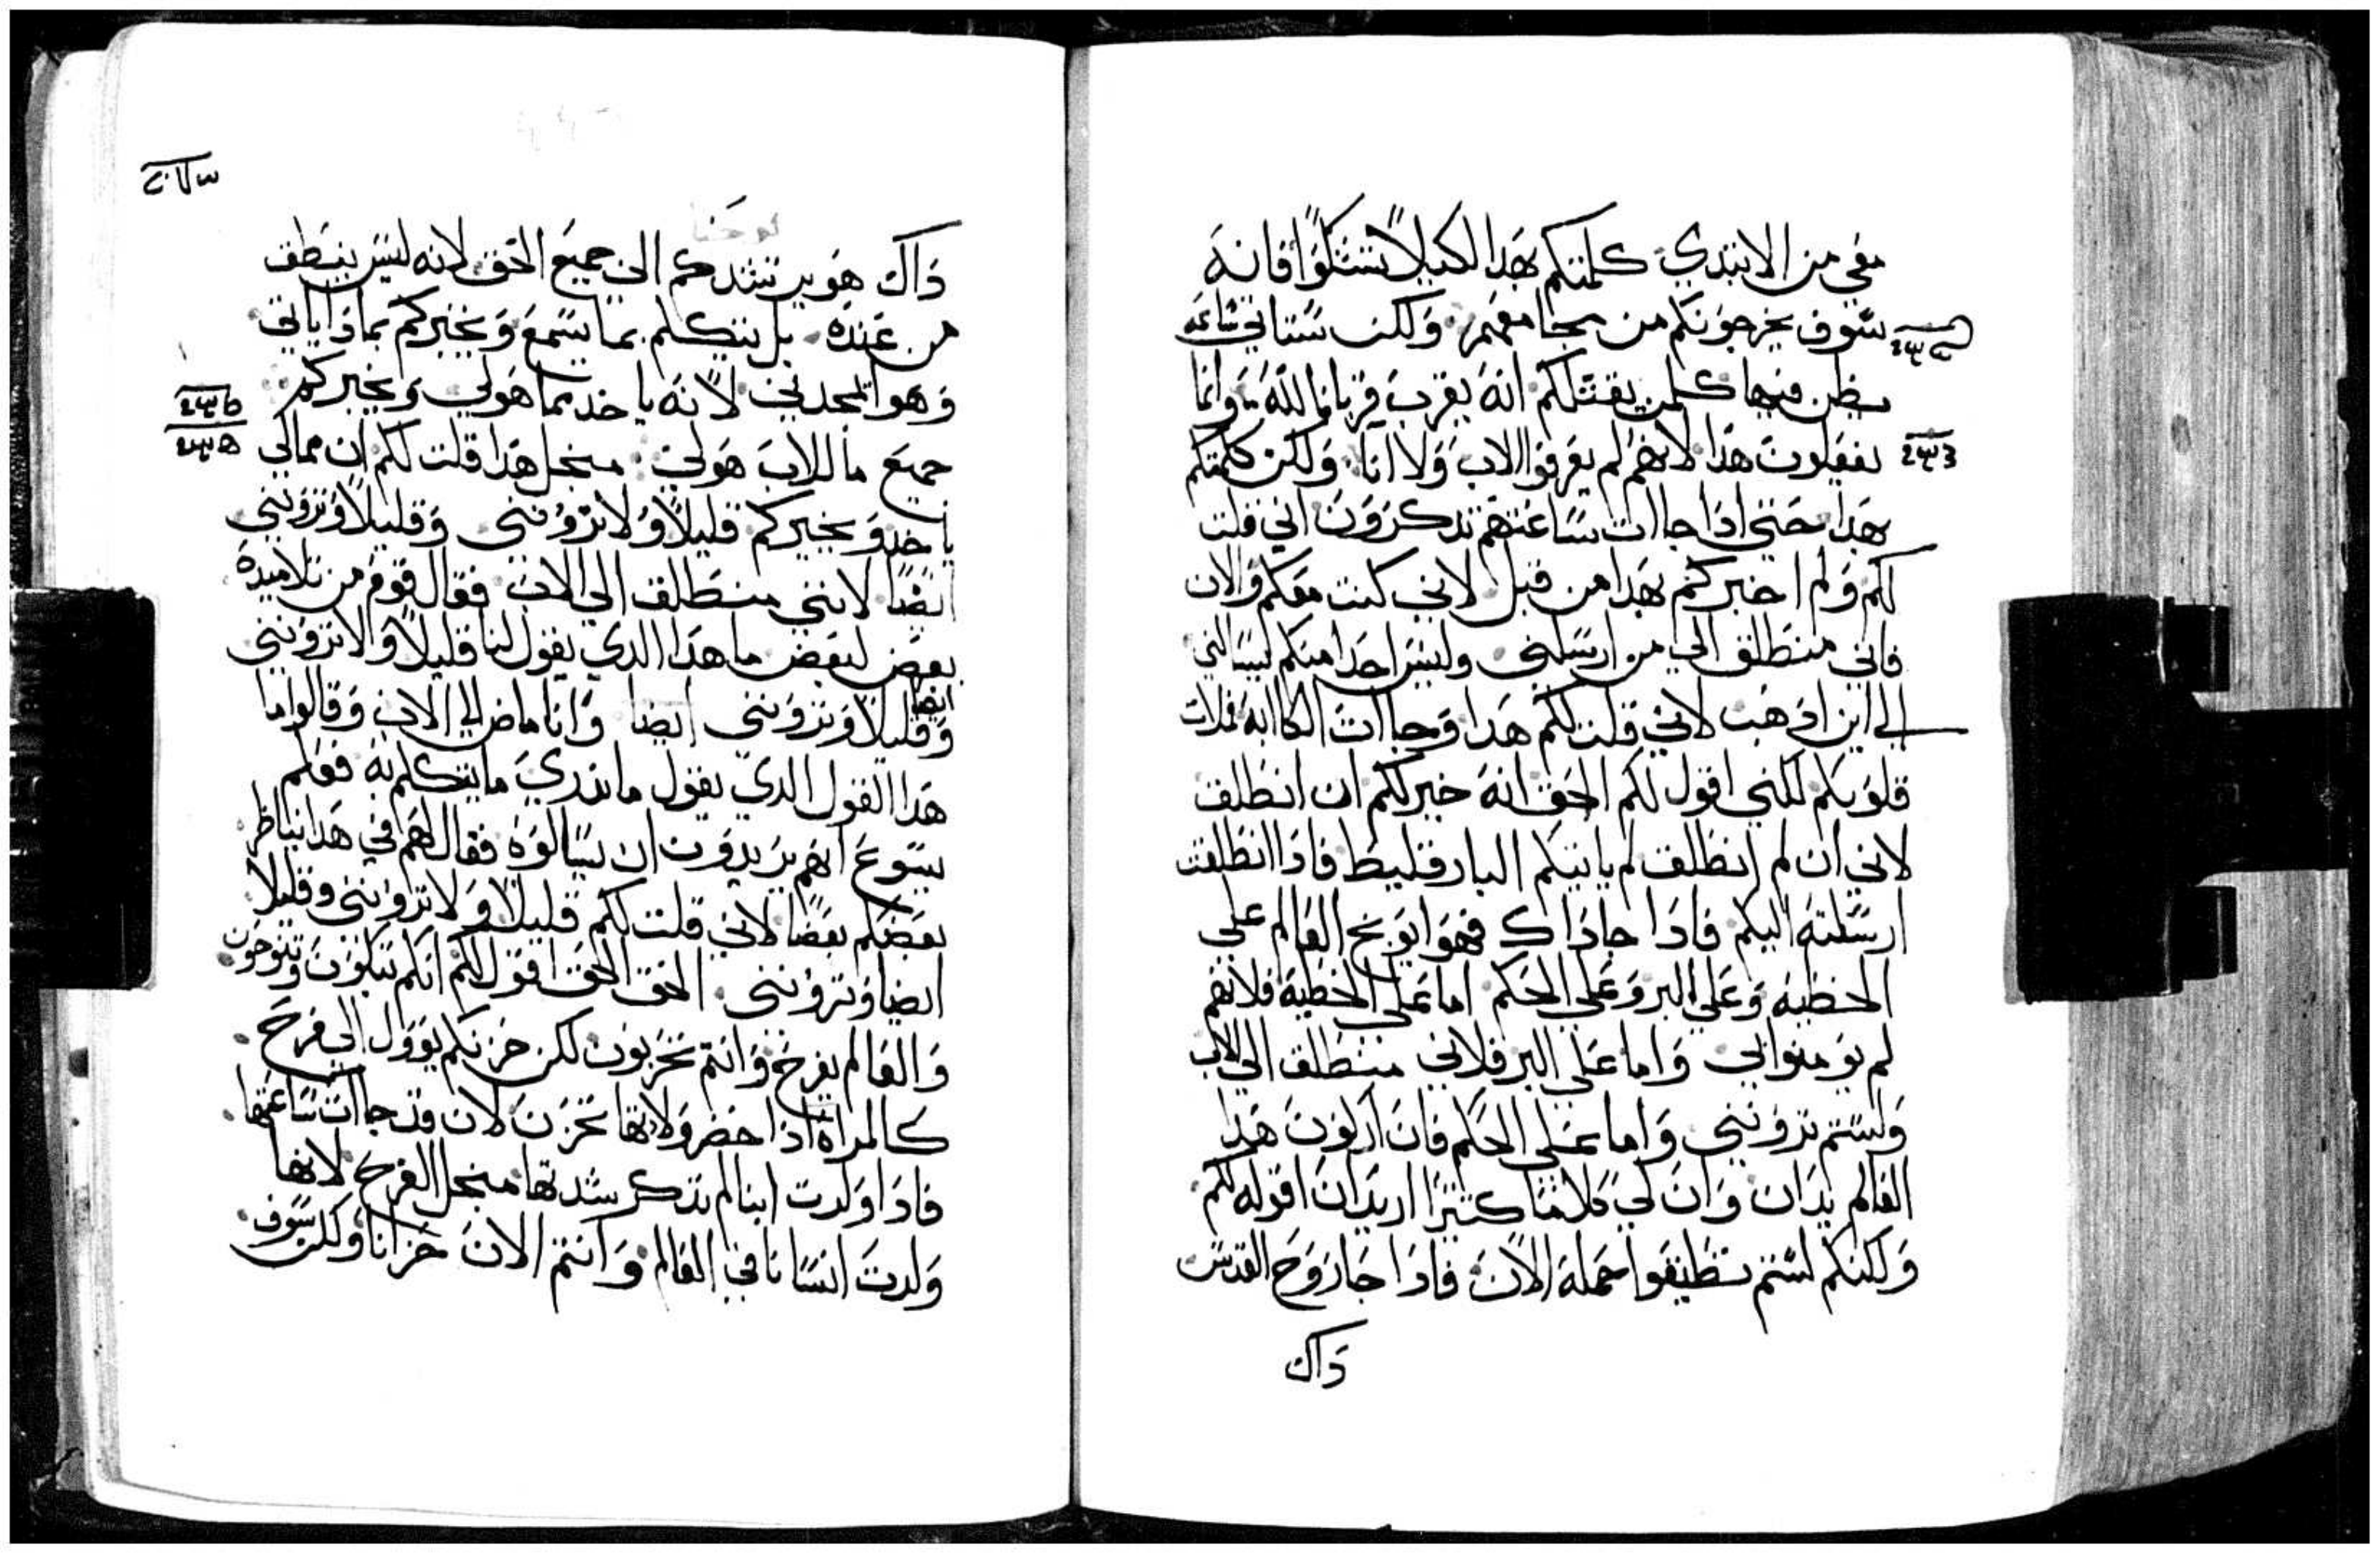 معي من الابتدي كلمتكم بهدا لكيلا تشكوا فانه
سوف يخرجونكم من مجامعهم ولكن ستاتي ساعه
يظن فيها كلمن يقتلكم انه يقرب قربانا لله وانما
يفعلون هدا لانهم لم يعرفوا الاب ولا انا ولكن كلمتكم
هدا حتي ادا جاات ساعتهم تدكرون اني قلت
لكم ولم اخبركم بهدا من قبل لاني كنت معكم والان
فاني منطلق الي من ارسلني وليس احدا منكم ليسالني
الي اين ادهب لاني قلت لكم هدا وجاات الكاابه فملات
قلوبكم لكني اقول لكم الحق انه خير لكم ان انطلق
لاني ان لم انطلق لم ياتيكم البارقليط فادا انطلقت
ارسلته اليكم فادا جا داك فهوا يوبخ العالم علي
الخطيه وعلي البر وعلي الحكم اما علي الخطيه فلانهم
لم يومنوا بي واما علي البر فلاني منطلق الي الاب
ولستم تروني واما علي الحكم فان اركون هدا
العالم يدان وان لي كلاما كتيرا اريد ان اقوله لكم
ولكنكم لستم تطيقوا حمله الان فادا جا روح القدس
داك
يوحنا
داك هو يرشدكم الي جميع الحق لانه ليس ينطق
من عنده بل يتكلم بما يسمع ويخبركم بما داياتي
وهو يمجدني لانه ياخد مما هو لي ويخبركم
جميع ما للاب هو لي منجل هدا قلت لكم ان ممالي
ياخد ويخبركم قليلا ولا تروني وقليلا وتروني
ايضا لانني منطلق الي الاب فقال قوم من تلاميده
بعض لبعض ما هدا الدي يقول لنا قليلا ولا تروني
ايضا
وقليلا وتروني ايضا وانا ماض الي الاب وقالوا ما
هدا القول الدي يقول ما ندري ما يتكلم به فعلم
يسوع انهم يريدون ان يسالوه فقال لهم في هدا يناظر
بعضكم بعضا لاني قلت لكم قليلا ولا تروني وقليلا
ايضا وتروني الحق الحق اقول لكم انكم تبكون وتنوحون
والعالم يفرح وانتم تحزنون لكن حزنكم يوول الي فرح
كالمراة ادا حضر ولادتها تحزن لان قد جاات ساعتها
فادا ولدت ابنا لم تدكر شدتها منجل الفرح لانها
ولدت انسانا في العالم وانتم الان حزانا ولكن سوف